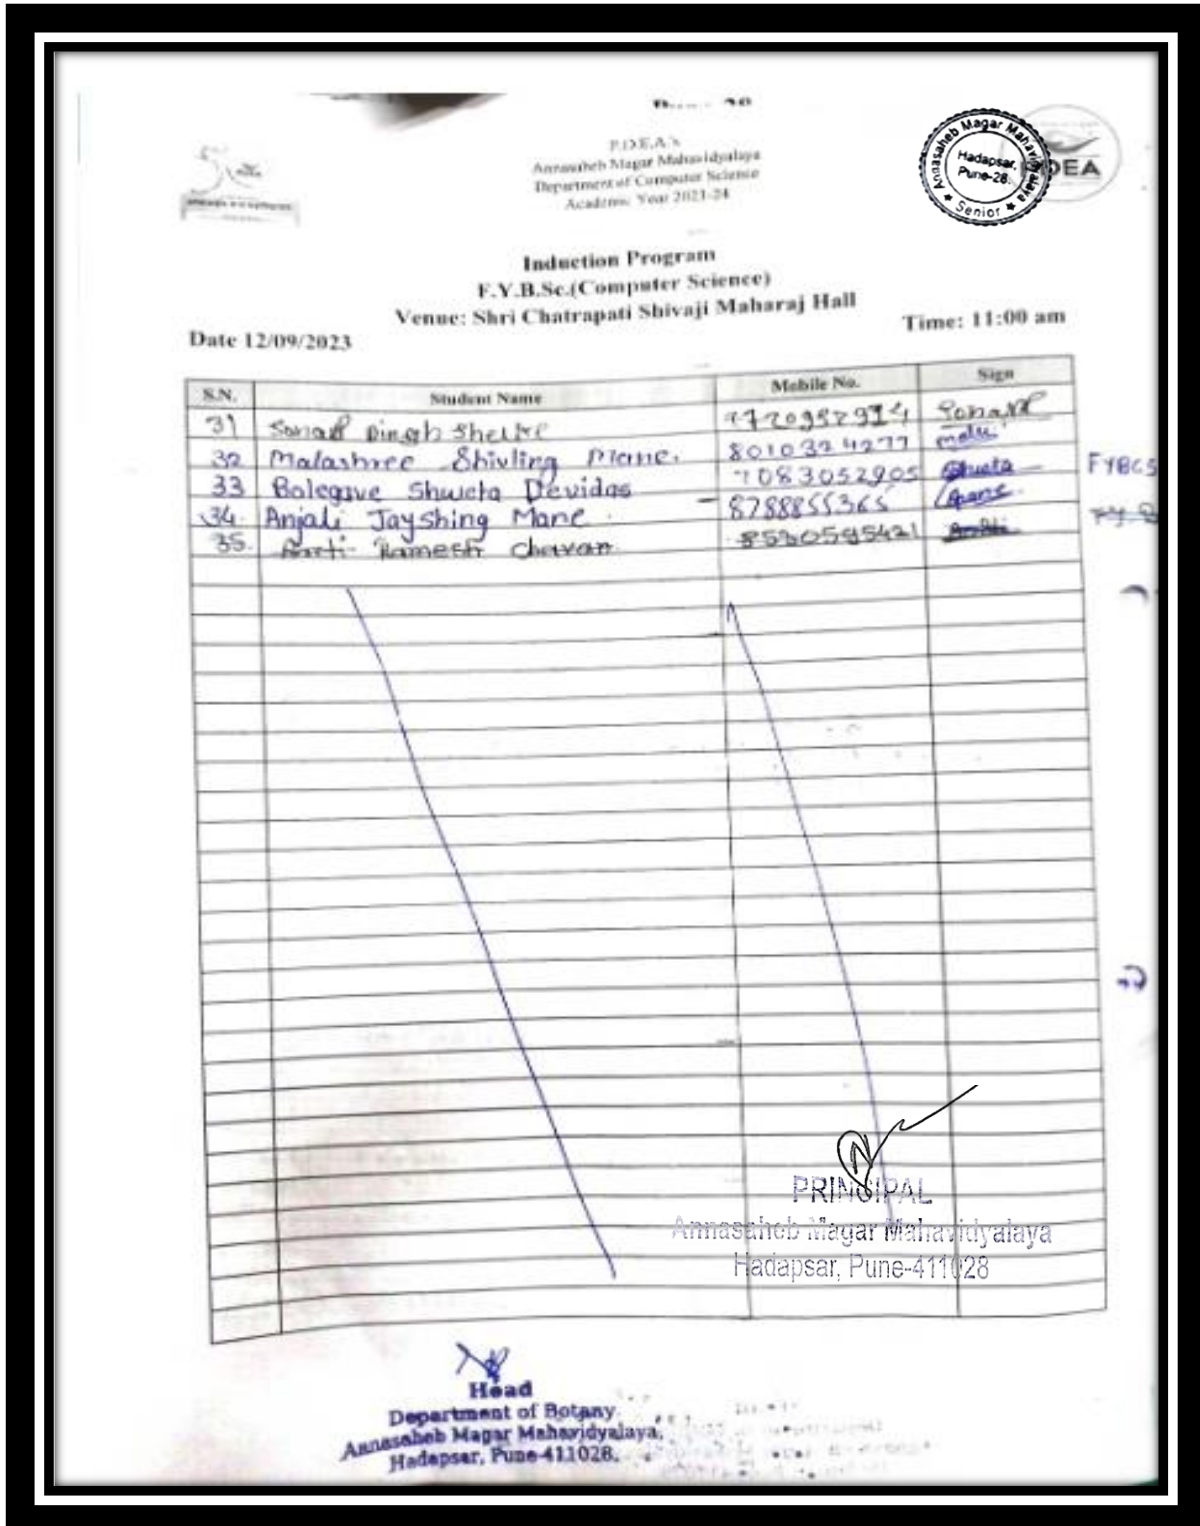 P.D.E.A's
Annasaheb Magar Mahavidyalaya
Department of Computer Science
Academic Year 2023-24
Annasaheb Magar Mahavidyalaya
Hadapsar, Pune-28.
★ Senior ★
DEA
Induction Program
F.Y.B.Sc.(Computer Science)
Venue: Shri Chatrapati Shivaji Maharaj Hall
Date 12/09/2023 Time: 11:00 am
S.N. Student Name Mobile No. Sign
31 Shelke
32 Malashree Shivling Mane. 8010324277 malu
33 Balegave Shweta Devidas 7083052905 Shweta FYBCS
34. Anjali Jayshing Mane 8788855365 Mane
35. Aarti Ramesh Chavan 8530595421 FY B
PRINCIPAL
Annasaheb Magar Mahavidyalaya
Hadapsar, Pune-411028
Head
Department of Botany
Annasaheb Magar Mahavidyalaya,
Hadapsar, Pune-411028.